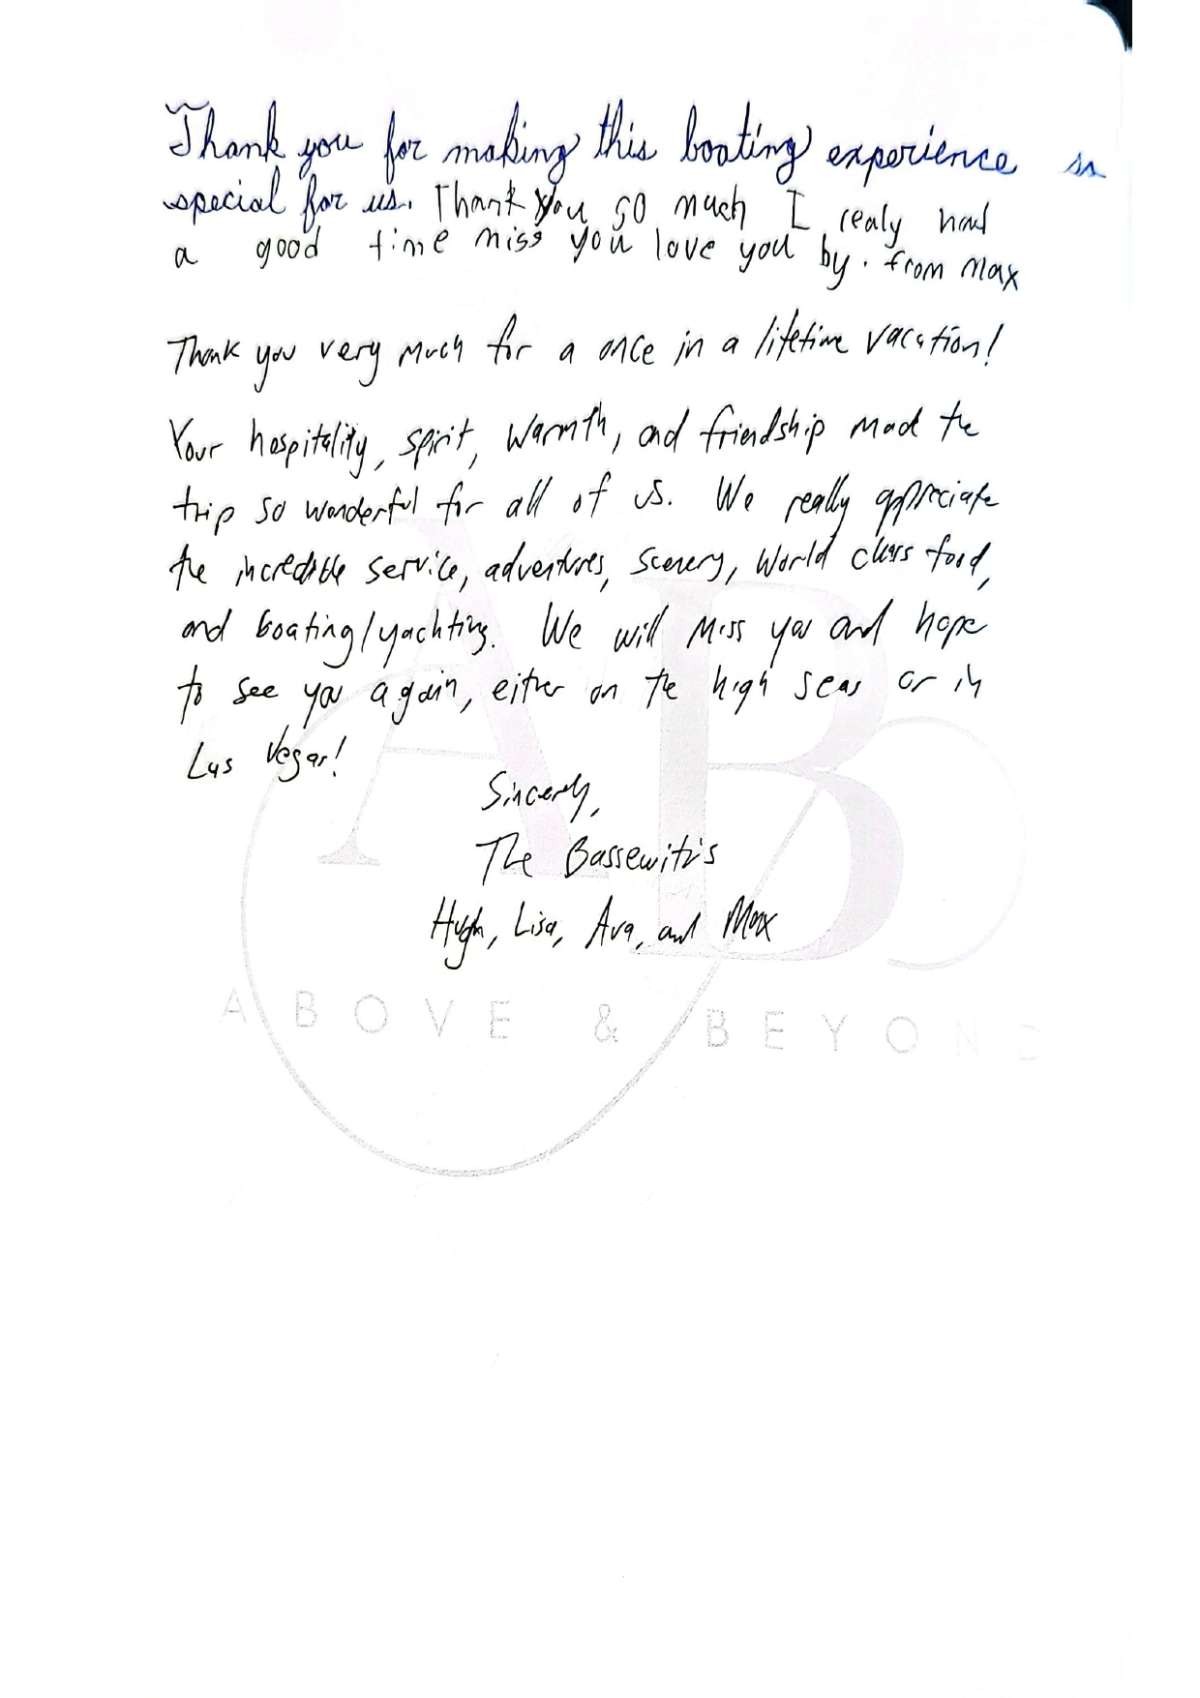 Thank you for making this boating experience so
special for us. Thank you so much I realy had
a good time miss you love you by. from Max
Thank you very much for a once in a lifetime vacation!
Your hospitality, spirit, warmth, and friendship mad the
trip so wonderful for all of us. We really appreciate
the incredible service, adventures, scenery, world class food,
and boating/yachting. We will miss you and hope
to see you again, either on the high seas or in
Las Vegas!
Sincerely,
The Bassewitz's
Hugh, Lisa, Ava, and Max
AB
ABOVE & BEYOND